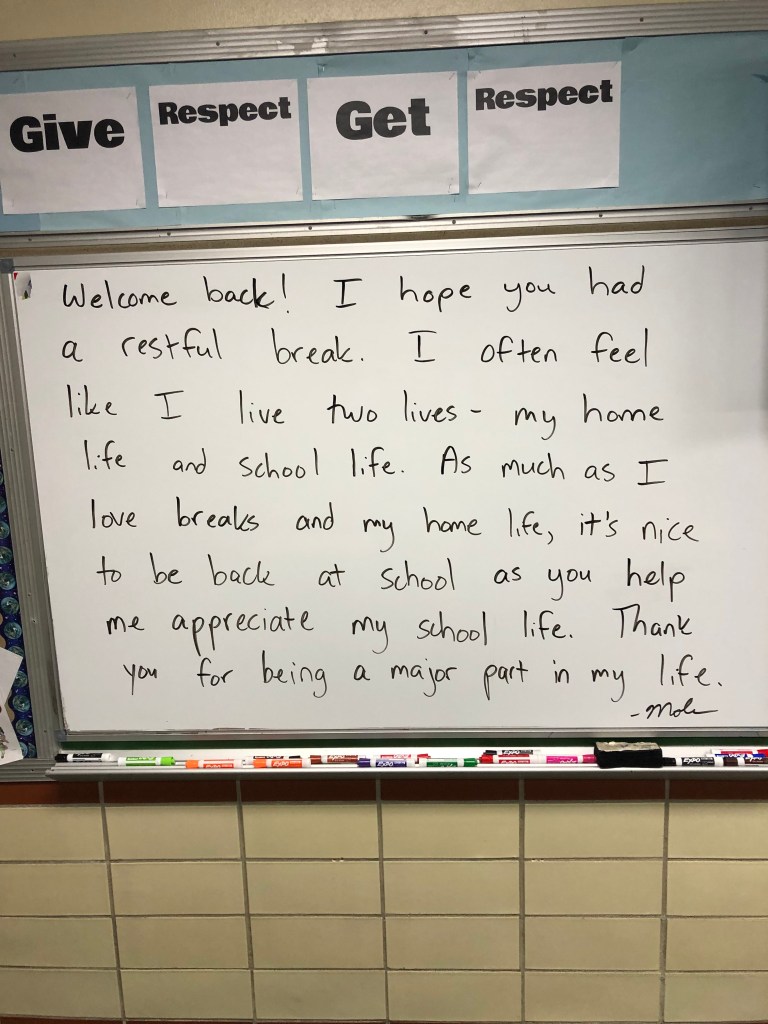 Give Respect Get Respect
Welcome back! I hope you had
a restful break. I often feel
like I live two lives - my home
life and school life. As much as I
love breaks and my home life, it's nice
to be back at school as you help
me appreciate my school life. Thank
you for being a major part in my life.
EXPO